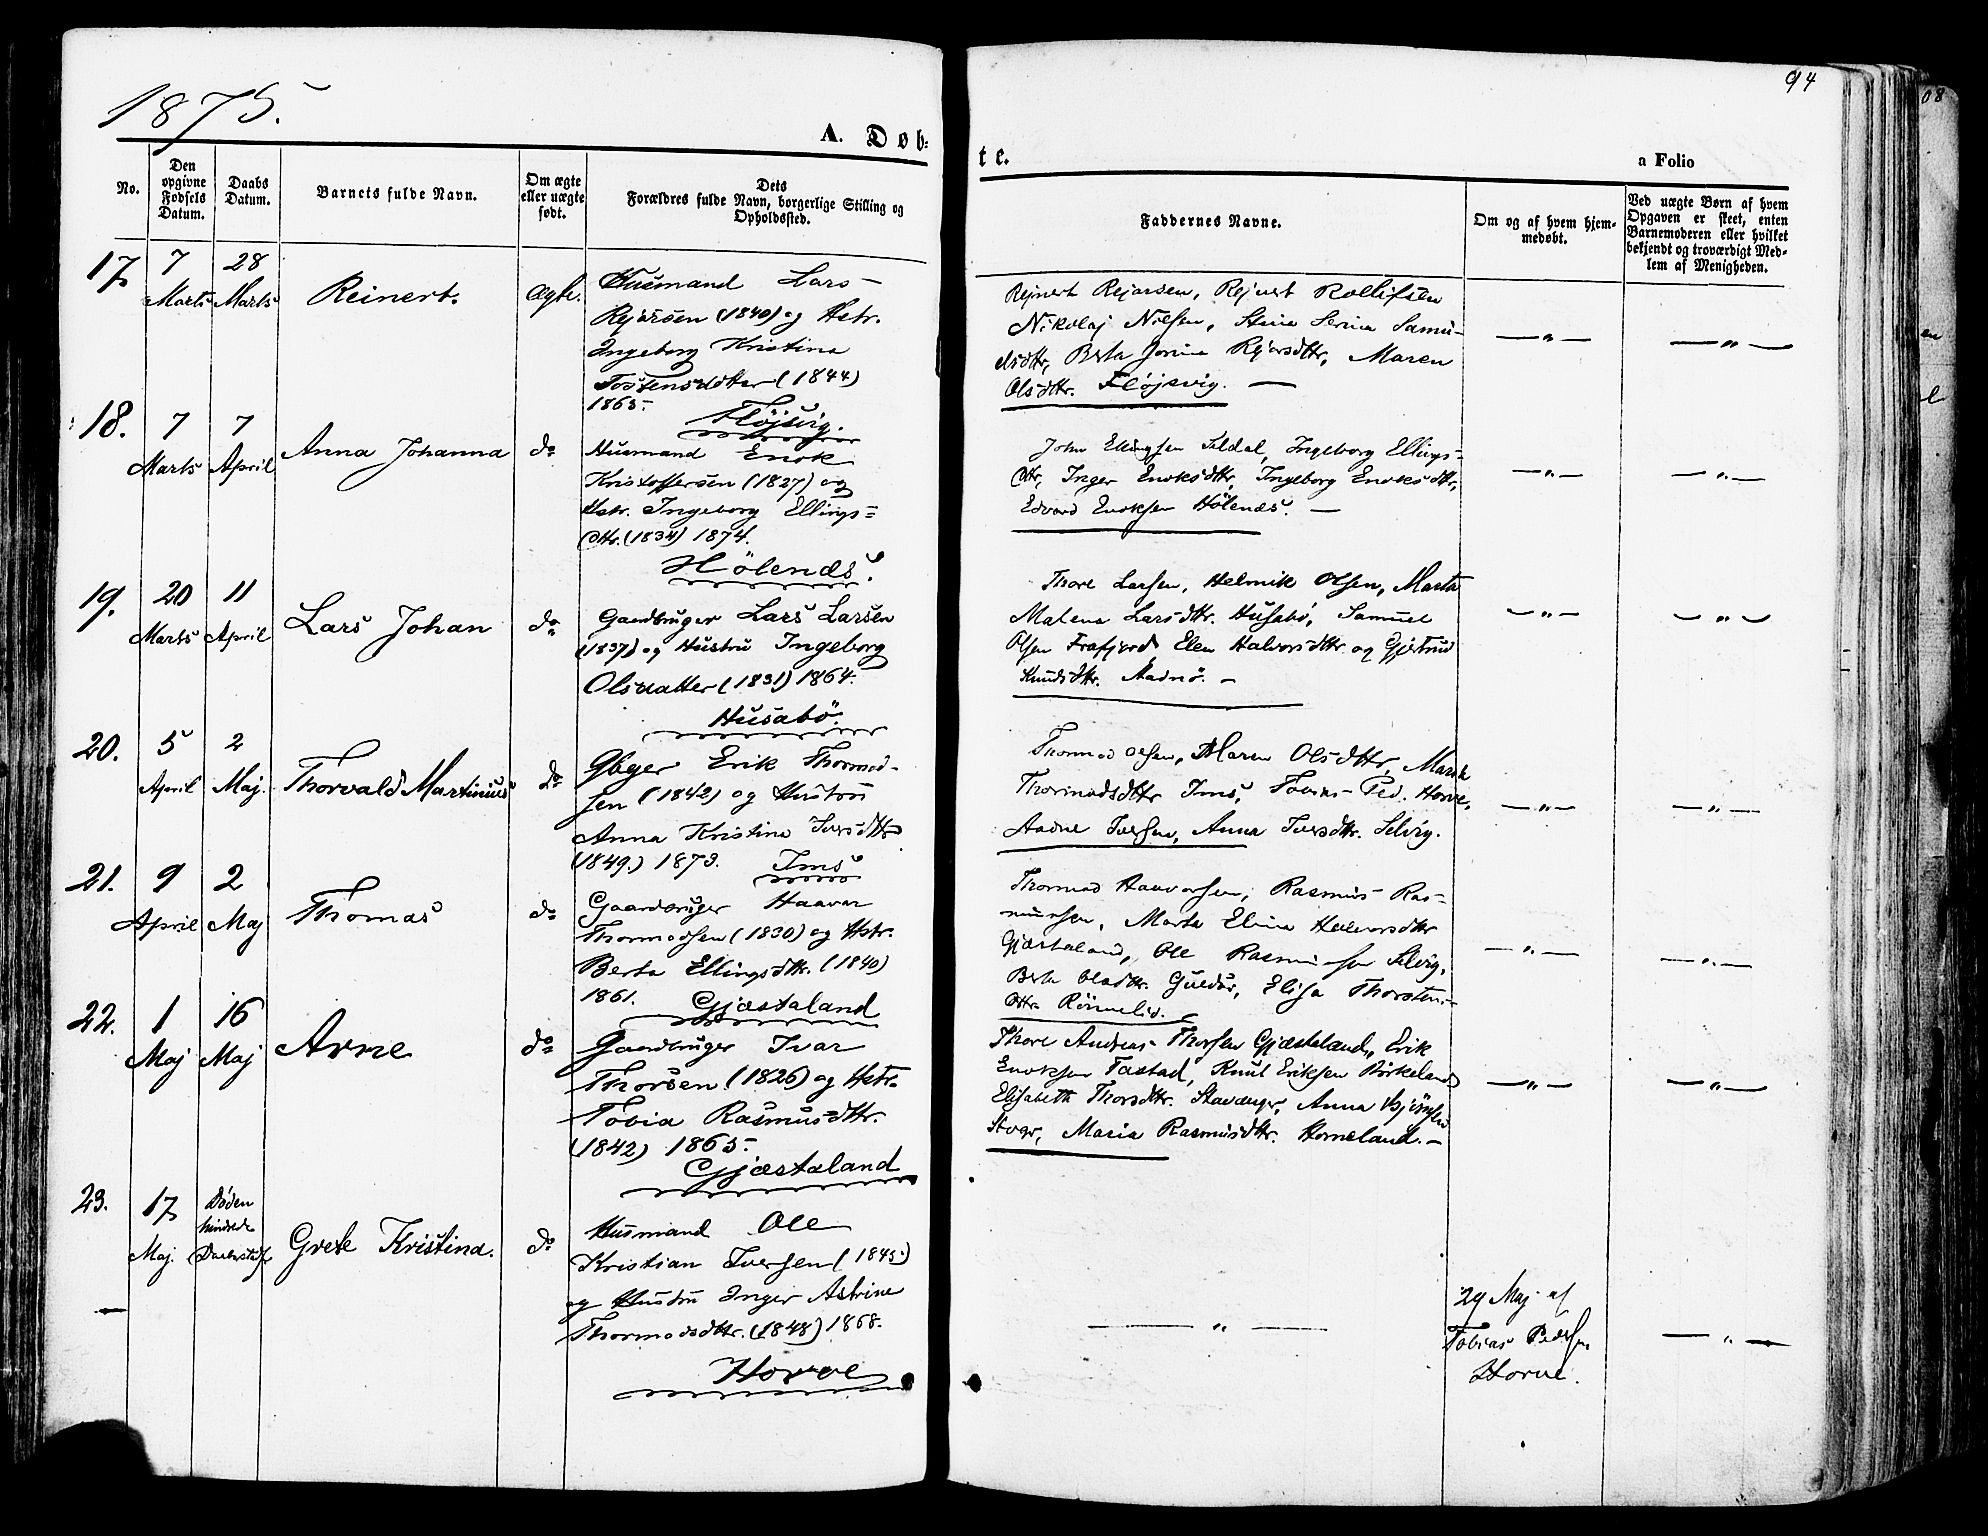 1875.
94
A. Døb-
te.
a Folio
No.
Den opgivne Fødsels Datum.
Daabs Datum.
Barnets fulde Navn.
Om ægte eller uægte født.
Dets Forældres fulde Navn, borgerlige Stilling og Opholdssted.
Faddernes Navne.
Om og af hvem hjemmedøbt.
Ved uægte Børn af hvem Opgaven er skeet, enten Barnemoderen eller hvilket bekjendt og troværdigt Medlem af Menigheden.
17 7 Marts 28 Marts Reinert. Ægte.
Husmand Lars
Rejersen (1840) og Hstr.
Ingeborg Kristina
Tostensdatter (1844)
1865. Fløjsvig.
Rejnert Rejersen, Rejnert Rollifsen
Nikolaj Nilsen, Stina Serina Samu-
elsdttr, Berta Jonina Rejersdttr, Maren
Olsdttr. Fløjsvig. —
— " — — " —
18. 7 Marts 7 April Anna Johanna do
Husmand Enok
Kristoffersen (1827) og
Hstr. Ingeborg Ellings-
dttr. (1834) 1874.
Hölenæs.
John Ellingsen Seldal, Ingeborg Ellings-
dttr, Inger Enoksdttr, Ingeborg Enoksdttr,
Edvard Enoksen Hölenæs. —
— " — — " —
19. 20 Marts 11 April Lars Johan do
Gaardbruger Lars Larsen
(1837) og Hustru Ingeborg
Olsdatter (1831) 1864.
Husabö.
Thore Larsen, Helmik Olsen, Marta
Malena Larsdttr. Husabö, Samuel
Olsen Frafjord Elen Halvorsdttr. og Gjertrud
Knudsdttr. Aadnö. —
— " — — " —
20. 5 April 2 Maj. Thorvald Martinius do
Gbger Erik Thormod-
sen (1842) og Hustru
Anna Kristina Iversdttr
(1849.) 1873. Ims
Thormod Olsen, Maren Olsdttr, Marta
Thormodsdttr Ims, Tobias Ped. Horve,
Aadne Iversen, Anna Iversdttr. Selvig.
— " — — " —
21. 9 April 2 Maj Thomas do
Gaardbruger Haavar
Thormodsen (1830) og Hstr.
Berta Ellingsdttr. (1840)
1861. Gjæstaland
Thormod Haavorsen, Rasmus Ras-
mussen, Marta Elina Halvorsdttr
Gjæstaland, Ole Rasmussen Selvig,
Berta Olsdttr. Elisa Thorsten-
dttr. Rönnelid.
— " — — " —
22. 1 Maj 16 Maj Arne do
Gaardbruger Ivar
Thorsen (1826) og Hstr.
Tobia Rasmusdttr.
(1842) 1865.
Gjæstaland
Thore Andreas Thorsen Gjæsteland, Erik
Enoksen Tastad, Knut Eriksen Birkeland
Elisabeth Thorsdttr. Stavanger, Anna
Stvgr, Maria Rasmusdttr. Horneland. —
— " — — " —
23. 17 Maj. Døden hindrede Grete Kristina. do
Husmand Ole
Kristian Iversen (1845.)
og Hustru Inger Astrine
Thormodsdttr. (1848) 1868.
Horve
— " —
29 Maj af
Tobias Peders.
Horve.
— " —